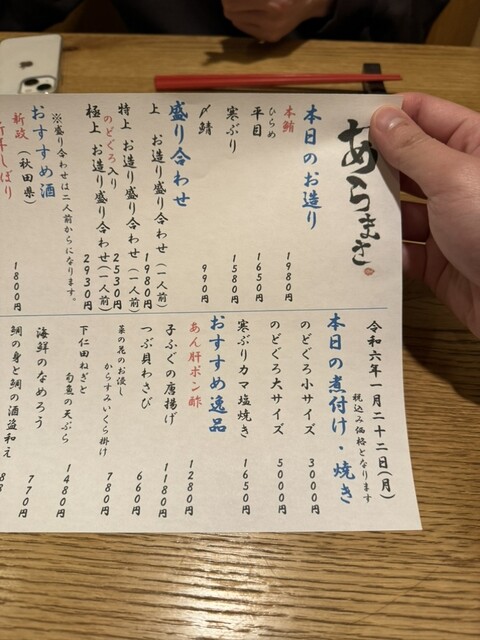 あらまさ
本日のお造り
本鮪 1980円
ひらめ
平目 1650円
寒ぶり 1580円
〆鯖 990円
盛り合わせ
上 お造り盛り合わせ(一人前) 1980円
特上 お造り盛り合わせ(一人前) 2530円
のどぐろ入り
極上 お造り盛り合わせ(一人前) 2930円
※盛り合わせは二人前からになります。
おすすめ酒
新政(秋田県) 1800円
令和六年一月二十二日(月)
税込み価格となります
本日の煮付け・焼き
のどぐろ小サイズ 3000円
のどぐろ大サイズ 5000円
寒ぶりカマ塩焼き 1650円
おすすめ逸品
あん肝ポン酢 1280円
子ふぐの唐揚げ 1180円
つぶ貝わさび 660円
菜の花のお浸し
からすみいくら掛け 780円
下仁田ねぎと
旬魚の天ぷら 1480円
海鮮のなめろう 770円
鯛の身と鯛の酒盗和え